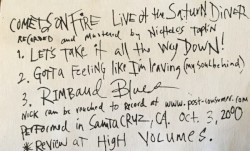 COMETS ON FIRE Live at the Saturn Diner
RECORDED and mastered by Nicholas Taplin
1. LET'S TAKE it all the WAY DOWN!
2. GOTTA Feeling like I'm leaving (my soul behind)
3. RIMBAUD Blues
NICK can be reached to record at www.post-consumer.com
Performed in SANTA CRUZ, CA. Oct. 3, 2000
*REVIEW AT HIGH VOLUMES.